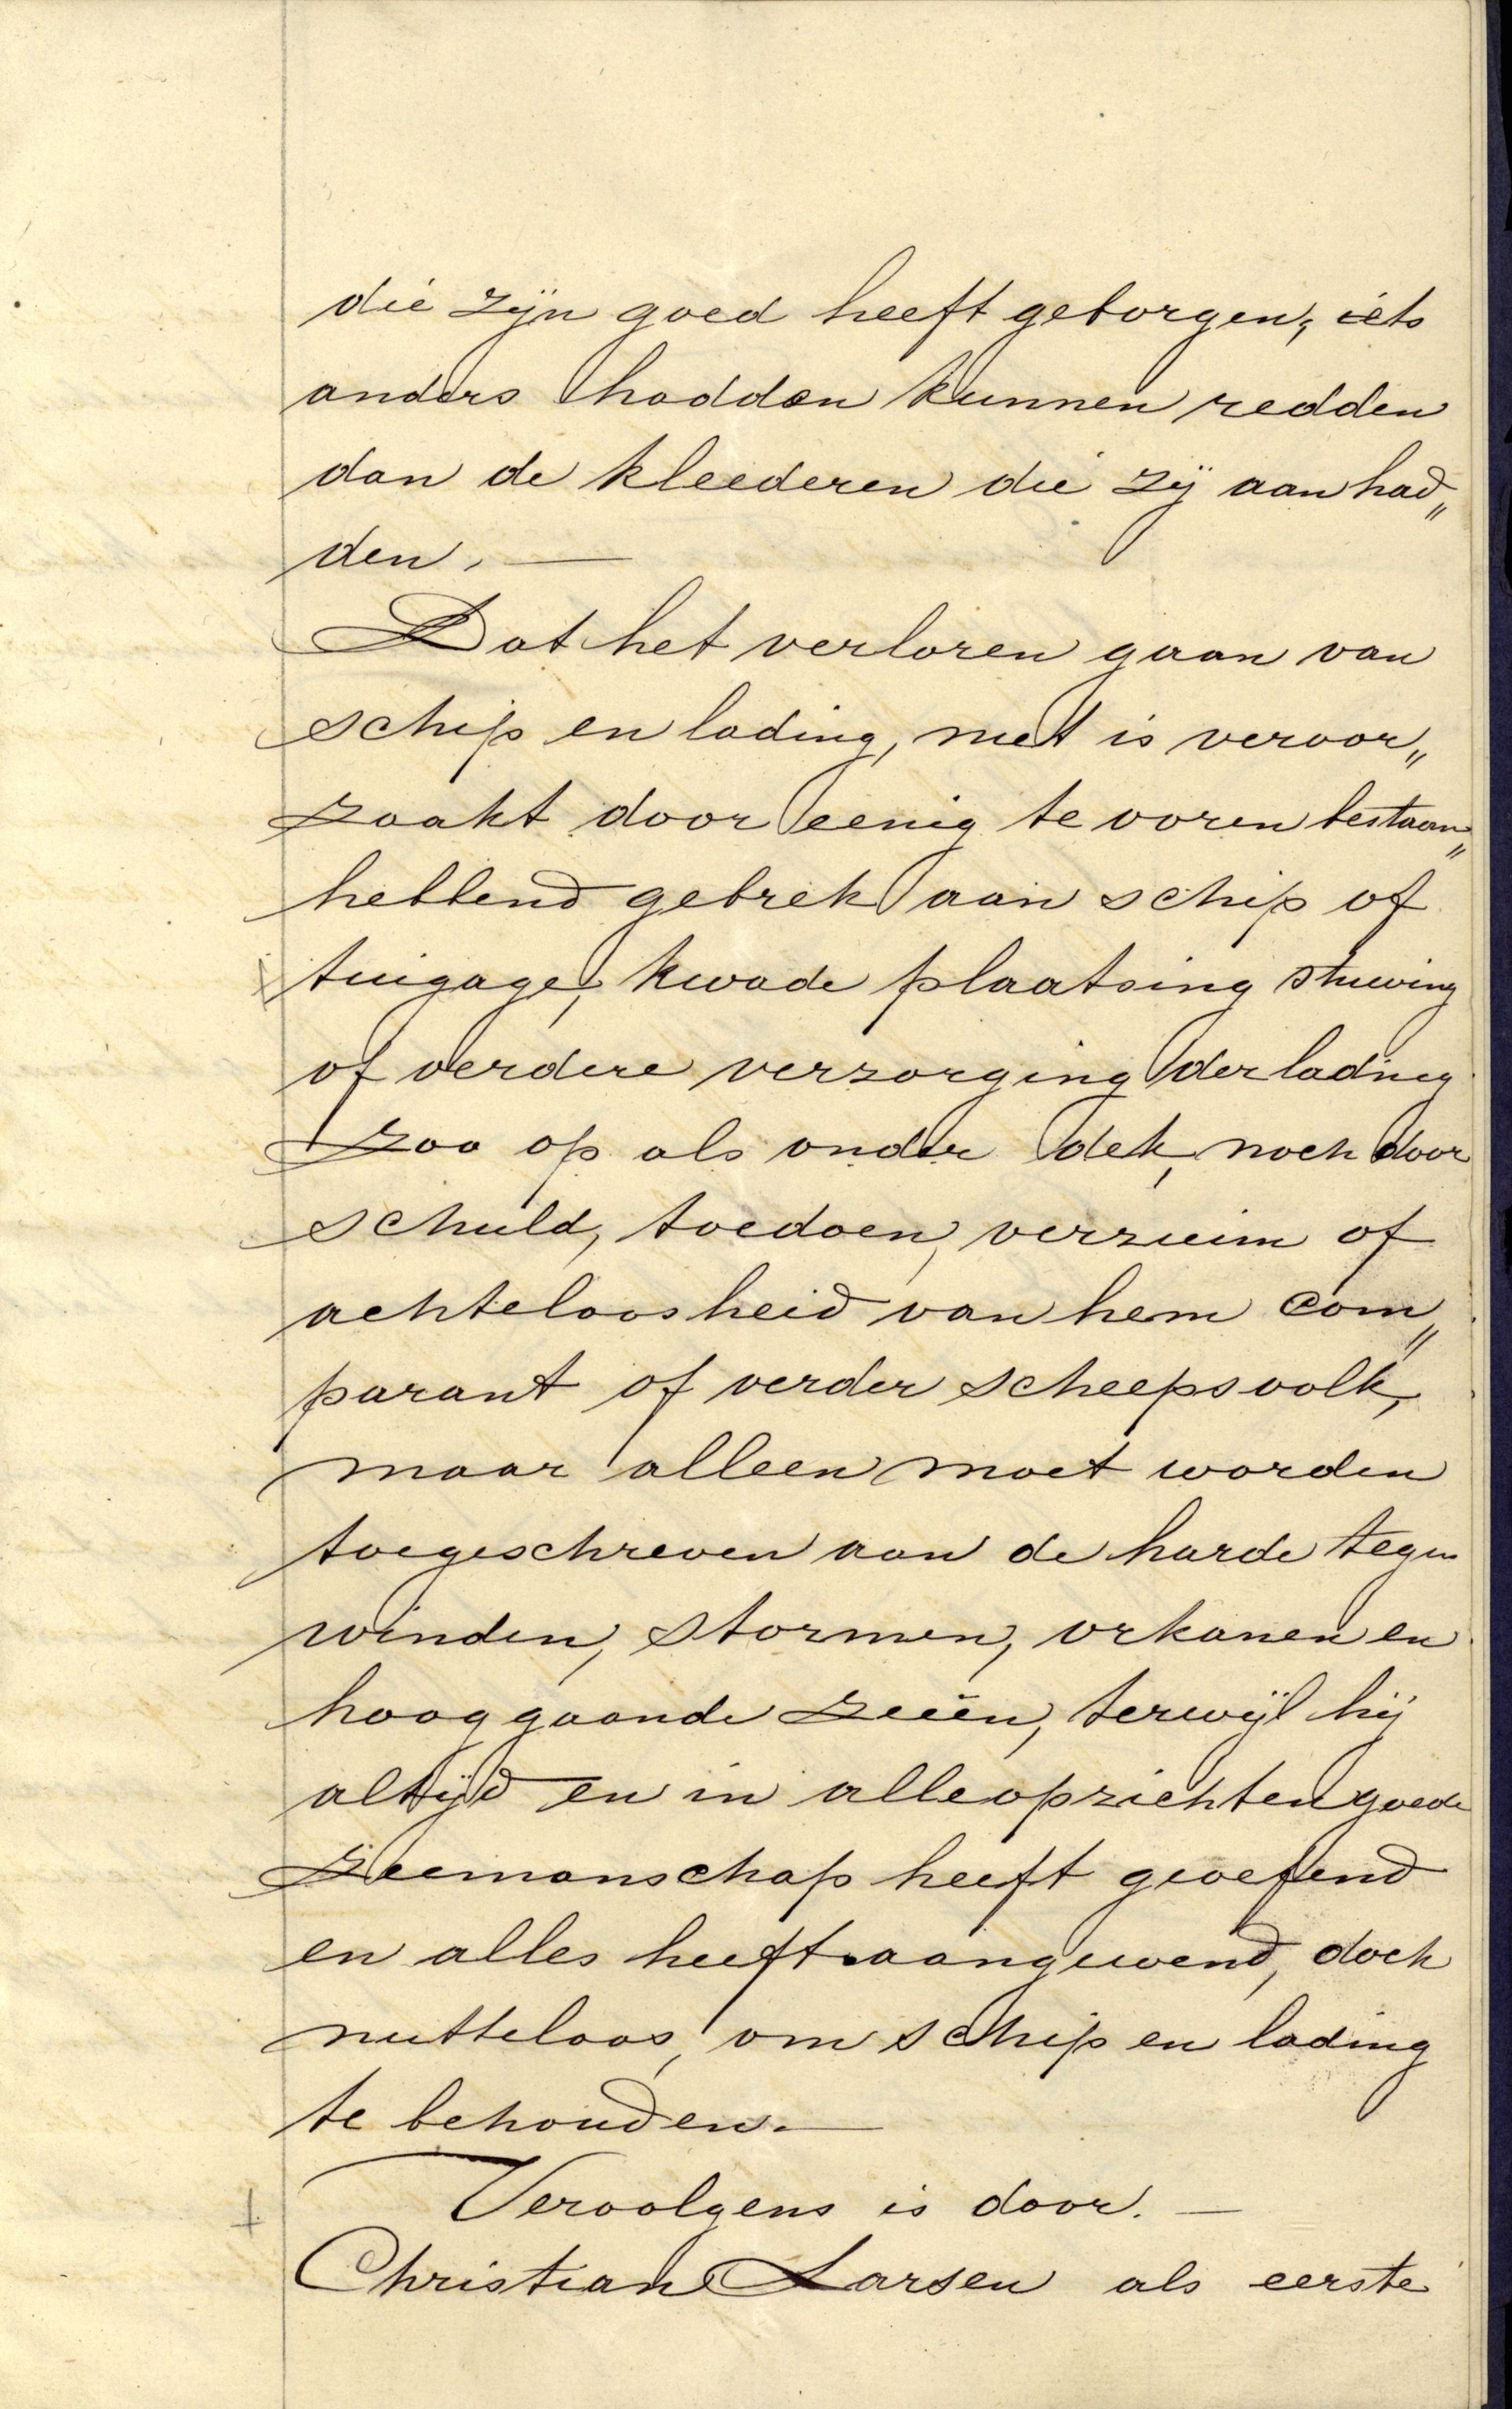 die zijn goed heeft geborgen, iets
anders hadden kunnen redden
dan de kleederen die zij aan had„
den. —
Dat het verloren gaan van
schip en lading, niet is veroor„
zaakt door eenig te voren bestaan„
hebbend gebrek aan schip of
tuigage, kwade plaatsing stuwing
of verdere verzorging der lading
zoo op als onder dek, noch door
schuld, toedoen, verzuim of
achteloosheid van hem com„
parant of verder scheepsvolk,
maar alleen moet worden
toegeschreven aan de harde tegen
winden, stormen, orkanen en
hoog gaande zeeën, terwijl hij
altijd en in alle opzichten goede
zeemanschap heeft geoefend
en alles heeft aangewend, doch
nutteloos, om schip en lading
te behouden. —
Vervolgens is door. —
Christian Larsen als eerste